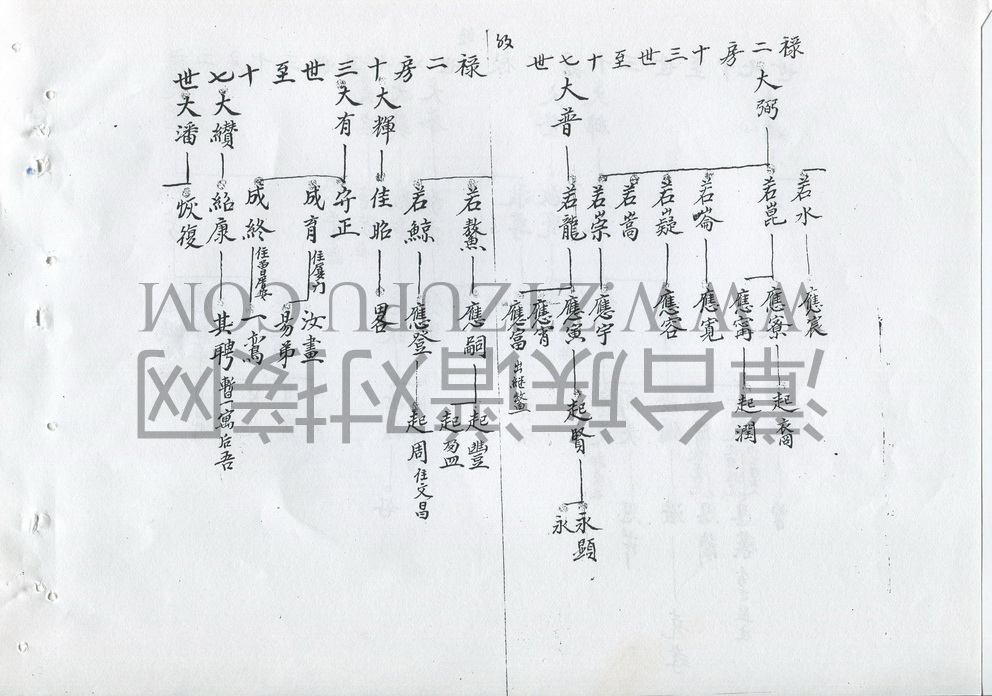 禄二房十三世至十七世
大弼
大普
若水
若崑
若崙
若嶷
若嵩
若崇
若龍
應宸
應寮
應甯
應寬
應容
應宇
應寅
應宵
應富 出継
起潤
起賢
永顕
永
禄二房十三世至十七世
大輝
大有
大纘
大潘
若鰲
若鯨
佳昭
守正
成育
成終
紹康
恢復
應嗣
應登
畧
汝畫
易弟
一鸞
其聘 暫寓后吾
起豐
起盈
起周 住文昌
WWW.ZIZUPU.COM
漳台族谱对接网